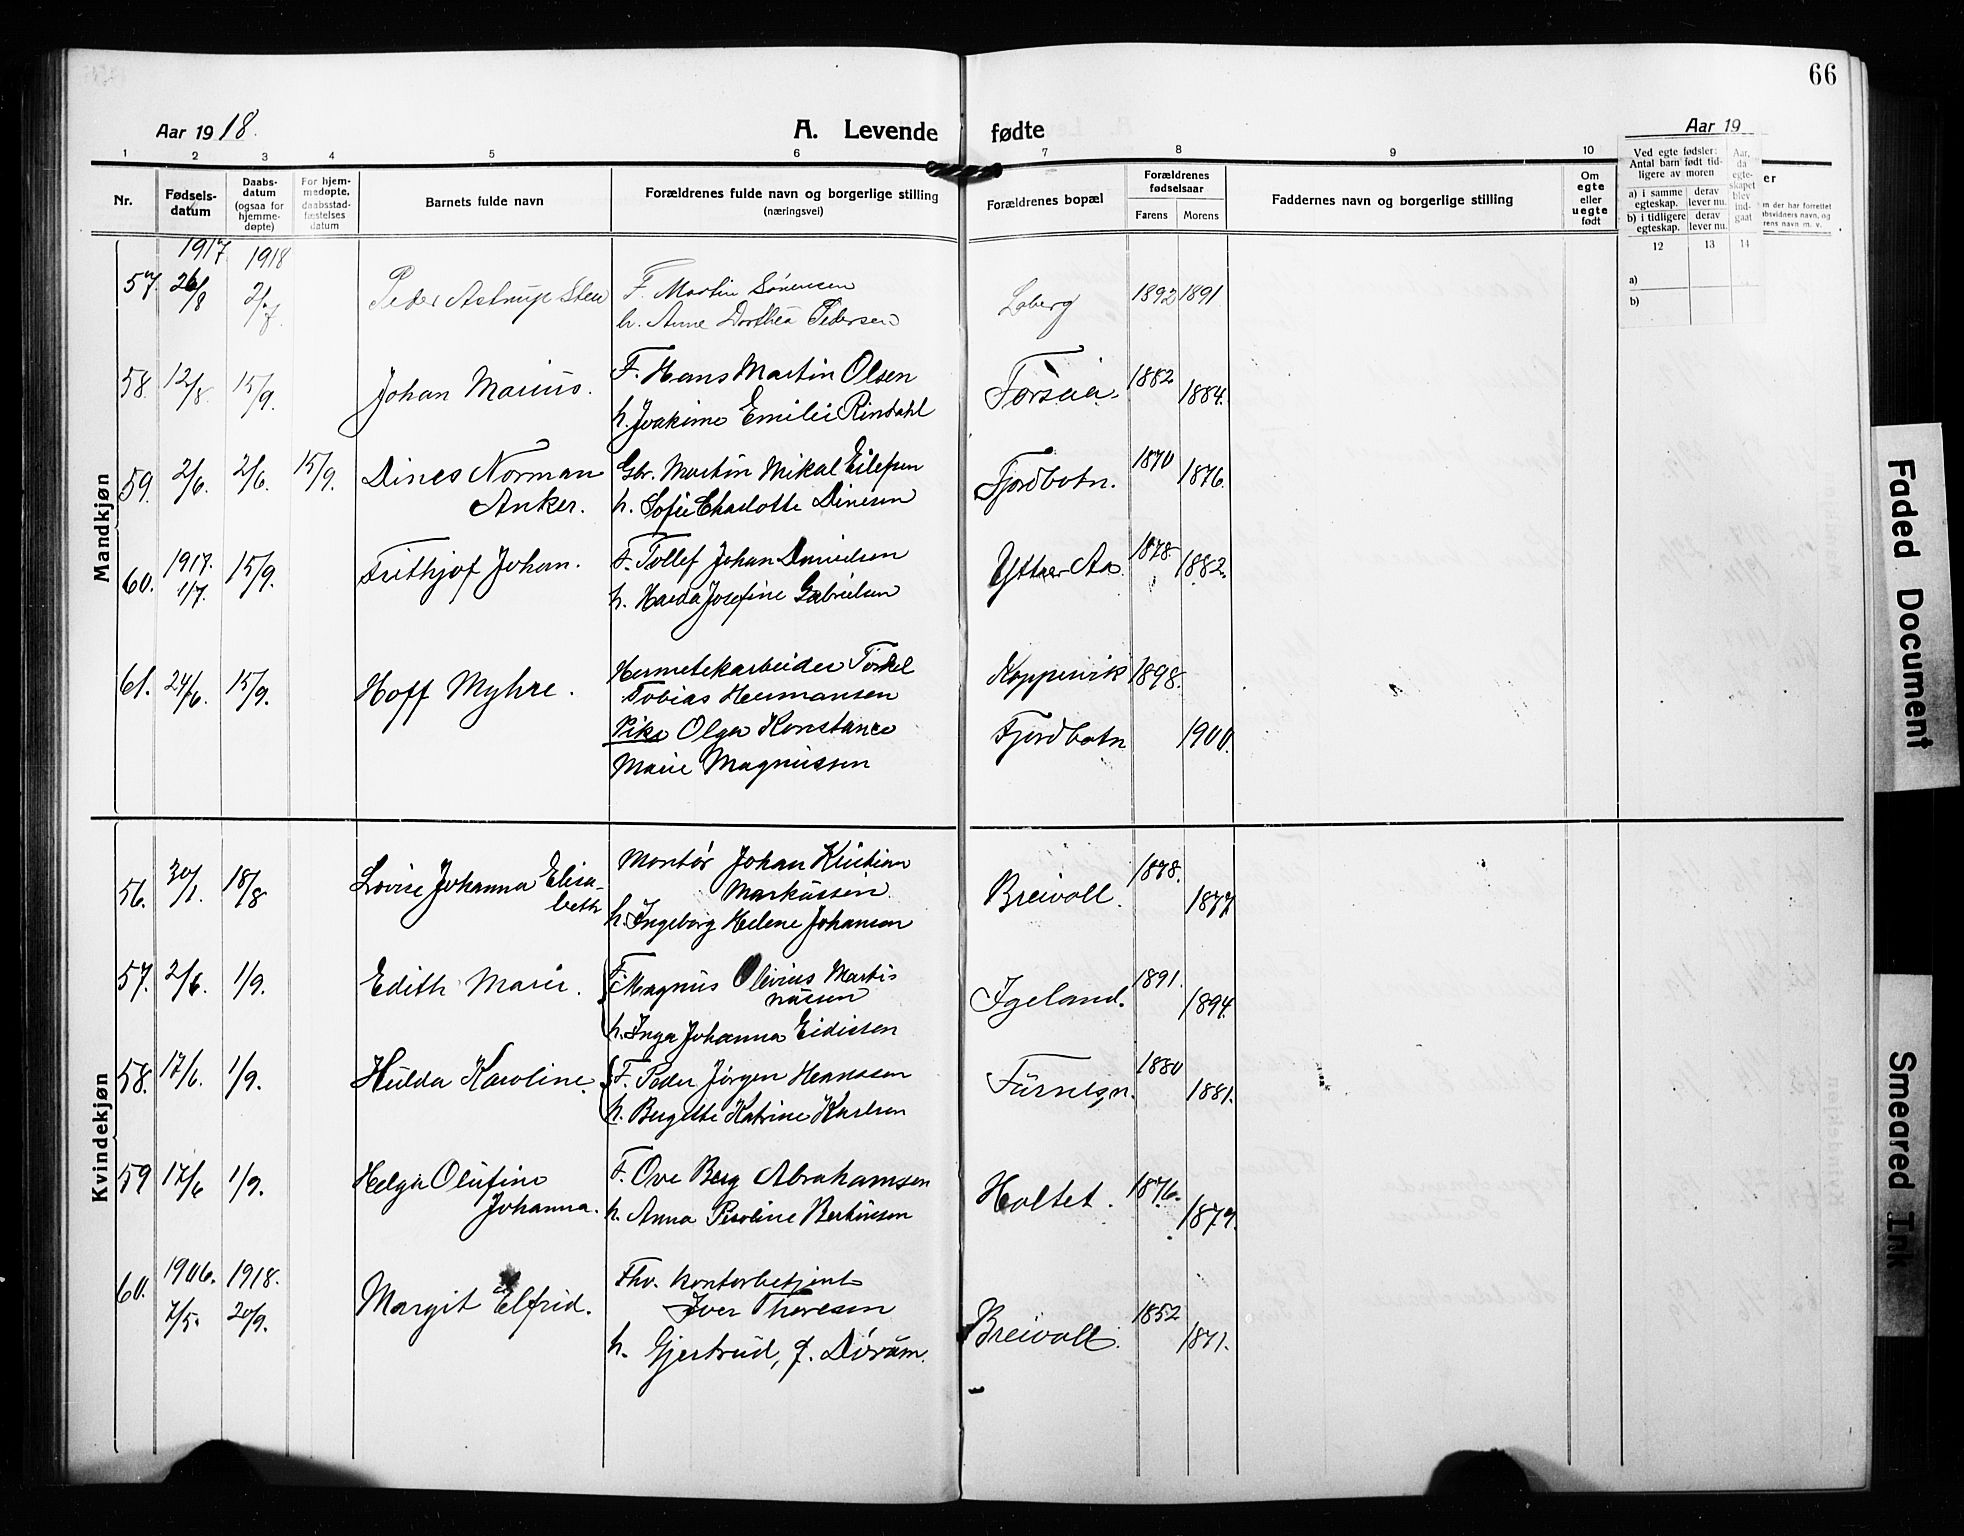 66
Aar 1918.
A. Levende fødte
Aar 19
1 2 3 4 5 6 7 8 9 10
Nr.
Fødsels-
datum
Daabs-
datum
(ogsaa for
hjemme-
døpte)
For hjem-
medøpte,
daabsstad-
fæstelses
datum
Barnets fulde navn
Forældrenes fulde navn og borgerlige stilling
(næringsvei)
Forældrenes bopæl
Forældrenes
fødselsaar
Farens Morens
Faddernes navn og borgerlige stilling
Om
egte
eller
uegte
født
Ved egte fødsler:
Antal barn født tid-
ligere av moren
a) i samme
egteskap.
derav
lever nu.
b) i tidligere
egteskap.
derav
lever nu.
Aar,
da
egte-
skapet
blev
ind-
gaat
12 13 14
a)
b)
er
m der har forrettet
absvidners navn, og
rens navn m. v.
Mandkjøn
1917 1918
57. 26/8 Peder Astrup Sten F. Martin Sørensen Loberg 1892 1891
h. Anne Dorthea Pedersen
58. 12/8. 15/9. Johan Marius. F. Hans Martin Olsen Forsaa. 1882 1884.
h. Joakime Emilie Rindahl
59. 2/6. 2/6. 15/9. Dines Norman Gbr. Martin Mikal Eilefsen Fjordbotn. 1870 1876.
Anker. h. Sofie Charlotte Dinesen
60. 1917. 1/7. 15/9. Frithjof Johan. F. Tollef Johan Danielsen Ytter Aa. 1878. 1882.
h. Harda Josefine Gabrielsen
61. 24/6. 15/9. Hoff Myhre. Hermetekarbeider Torkel Koppervik 1898.
Tobias Hermansen
Pike Olga Konstance Fjordbotn 1900.
Marie Magnussen
Kvindekjøn
56. 30/1. 18/8 Lovise Johanna Elisa- Montør Johan Kristian Breivoll. 1878. 1877
beth Markussen.
h. Ingeborg Helene Johansen
57. 2/6. 1/9. Edith Marie. F. Magnus Olivius Marti- Igeland. 1891. 1894.
nussen
h. Inga Johanna Eidissen
58. 17/6. 1/9. Hulda Karoline. F. Peder Jørgen Hanssen 1880 1881.
h. Bergette Katrine Karlsen
59 17/6 1/9. Helga Olufine F. Ove Berg Abrahamsen Holtet. 1876. 1879.
Johanna. h. Anna Peroline Bertinsen
60. 1906. 1918. Margit Elfrid. Fhv. kontorbetjent Breivoll. 1852 1871.
7/5. 20/9. Iver Thoresen
h. Gjertrud, f. Dørum.
Faded Document
Smeared Ink